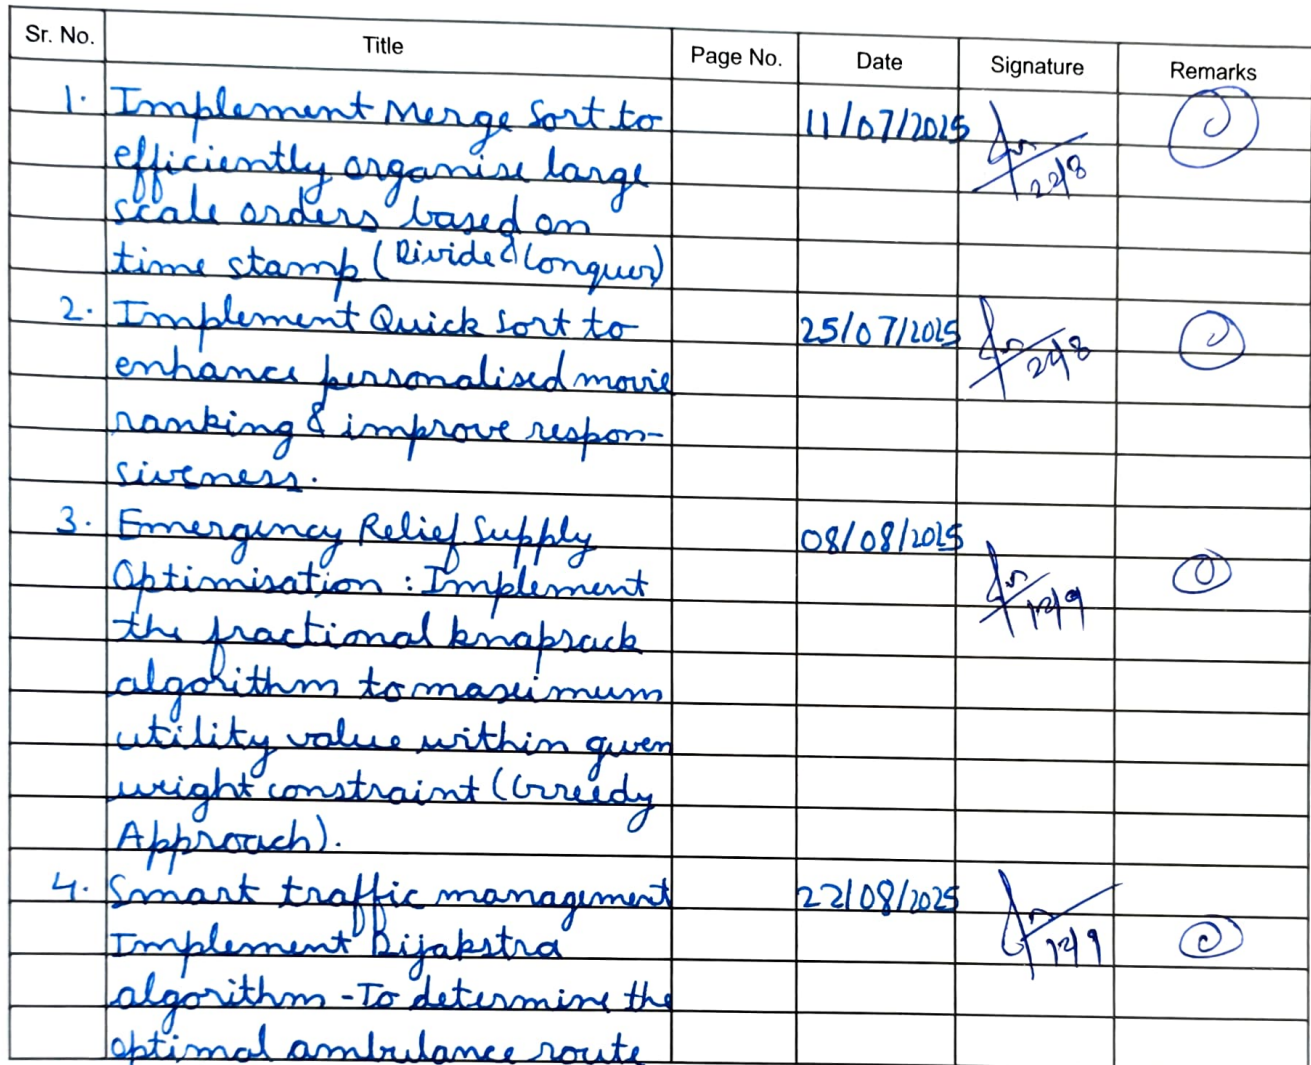 Sr. No. Title Page No. Date Signature Remarks
1. Implement Merge Sort to 11/07/2025
efficiently organise large 22/8
scale orders based on
time stamp (Divide & Conquer)
2. Implement Quick Sort to 25/07/2025
enhance personalised movie 22/8
ranking & improve respon-
siveness.
3. Emergency Relief Supply 08/08/2025
Optimisation : Implement
the fractional knapsack 12/9
algorithm to maximum
utility value within given
weight constraint (Greedy
Approach).
4. Smart traffic management 22/08/2025
Implement Dijakstra 12/9
algorithm - To determine the
optimal ambulance route